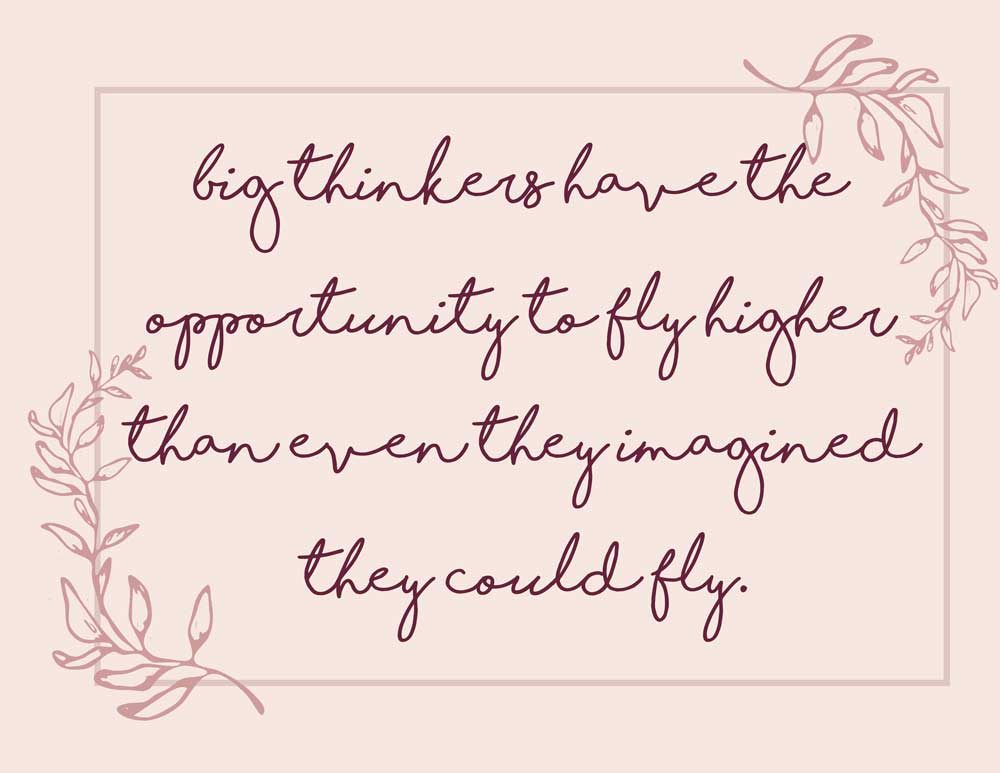 big thinkers have the
opportunity to fly higher
than even they imagined
they could fly.